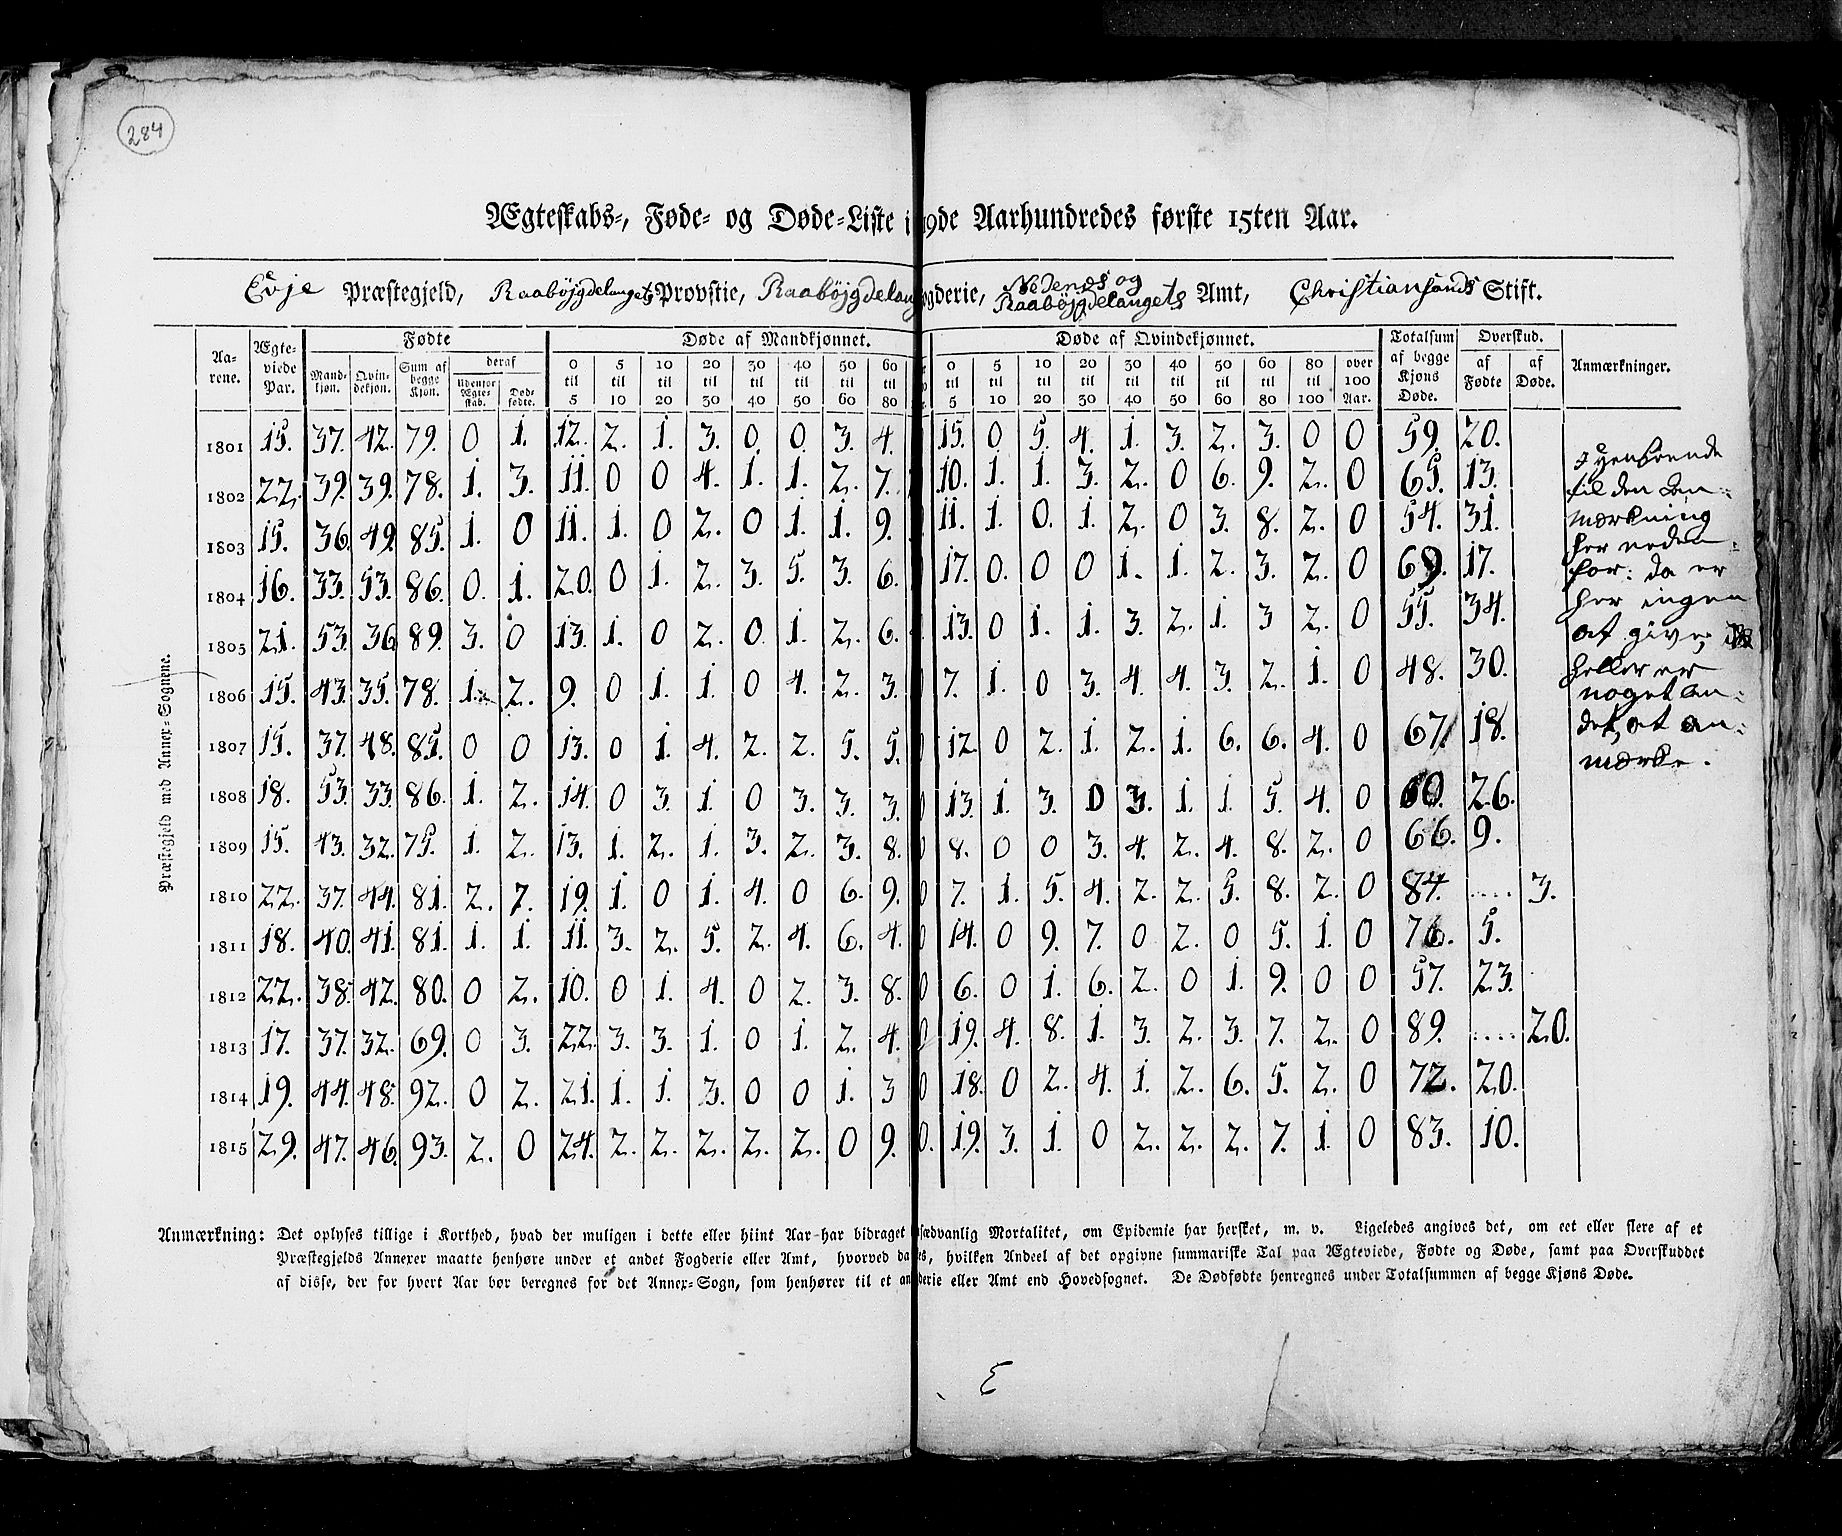 284
Ægteskabs-, Føde- og Døde-Liste i 19de Aarhundredes første 15ten Aar.
Evje Præstegjeld, Raabøjgdelaugets Provstie, Raabøjgdelau gderie, Nedenes og Raabøjgdelaugets Amt, Christiansands Stift.
Præstegjeld med Annex-Sognene.
Aarene. Ægteviede Par. Fødte Døde af Mandkjønnet. Døde af Qvindekjønnet. Totalsum af begge Kjøns Døde. Overskud. Anmærkninger.
Mandkjøn. Qvindekjøn. Sum af begge Kjøn. deraf Udenfor Ægteskab. Dødfødte. 0 til 5 5 til 10 10 til 20 20 til 30 30 til 40 40 til 50 50 til 60 60 til 80 0 til 5 5 til 10 10 til 20 20 til 30 30 til 40 40 til 50 50 til 60 60 til 80 80 til 100 over 100 Aar. af Fødte af Døde.
1801 15. 37. 42. 79. 0 1. 12. 2. 1. 3. 0. 0. 3. 4. 15. 0 5. 4. 1. 3. 2. 3. 0 0 59. 20.
1802 22. 39. 39. 78. 1. 3. 11. 0 0 4. 1. 1. 2. 7. 10. 1. 1. 3. 2. 0 6. 9. 2. 0 65. 13.
1803 15. 36. 49. 85. 1. 0 11. 1. 0 2. 0 1. 1. 9. 11. 1. 0. 1. 2. 0 3. 8. 2. 0 54. 31.
1804 16. 33. 53. 86. 0. 1. 20. 0 1. 2. 3. 5. 3. 6. 17. 0. 0 0 1. 1. 2. 3. 2. 0 69. 17.
1805 21. 53. 36 89. 3. 0 13. 1. 0 2. 0. 1. 2. 6. 13. 0 1. 1. 3. 2. 1. 3 2. 0 55. 34.
1806 15. 43. 35. 78. 1. 2. 9. 0 1. 1. 0 4. 2. 3. 7. 1. 0 3. 4. 4. 3. 2. 1. 0 48. 30.
1807 15. 37. 48. 85. 0 0 13. 0 1. 4. 2. 2. 5. 5. 12. 0 2. 1. 2. 1. 6. 6. 4. 0 67. 18.
1808 18. 53. 33. 86. 1. 2. 14. 0 3. 1. 0 3. 3. 3. 0 13. 1. 3. 0 3. 1. 1. 5. 4. 0 60. 26.
1809 15. 43. 32. 75. 1. 2. 13. 1. 2. 1. 3. 2. 3. 8. 0 8. 0 0 3. 4. 2. 4. 8. 2. 0 66. 9.
1810 22. 37. 44. 81. 2. 7. 19. 1. 0 1. 4. 0 6. 9. 0 7. 1. 5. 4. 2. 2. 5. 8. 2. 0 84. .... 3.
1811 18. 40. 41. 81. 1. 1. 11. 3. 2. 5. 2. 4. 6. 4. 0 14. 0 9. 7. 0 2. 0 5. 1. 0 76. 5.
1812 22. 38. 42. 80. 0 2. 10. 0 1. 4. 0 2. 3. 8. 0 6. 0 1. 6. 2. 0 1. 9. 0 0 57. 23.
1813 17. 37. 32. 69. 0 3. 22. 3. 3. 1. 0 1. 2. 4. 0 19. 4. 8. 1. 3. 2. 3. 7. 2. 0 89. .... 20.
1814 19. 44. 48. 92. 0 2. 21. 1. 1. 3. 0 0 1. 3 0 18. 0 2. 4. 1. 2. 6. 5. 2. 0 72. 20.
1815 29. 47. 46. 93. 2. 0 24. 2. 2. 2. 2. 2. 0 9. 0. 19. 3. 1. 0 2. 2. 2. 7. 1. 0 83. 10.
til den An-
mærkning
her neden-
for: da er
her ingen
at give,
heller er
noget an-
det, at an-
mærke.
Anmærkning: Det oplyses tillige i Korthed, hvad der muligen i dette eller hiint Aar har bidraget sædvanlig Mortalitet, om Epidemie har hersket, m. v. Ligeledes angives det, om eet eller flere af et
Præstegjelds Annexer maatte henhøre under et andet Fogderie eller Amt, hvorved da es, hvilken Andeel af det opgivne summariske Tal paa Ægteviede, Fødte og Døde, samt paa Overskuddet
af disse, der for hvert Aar bør beregnes for det Annex-Sogn, som henhører til et an derie eller Amt end Hovedsognet. De Dødfødte henregnes under Totalsummen af begge Kjøns Døde.